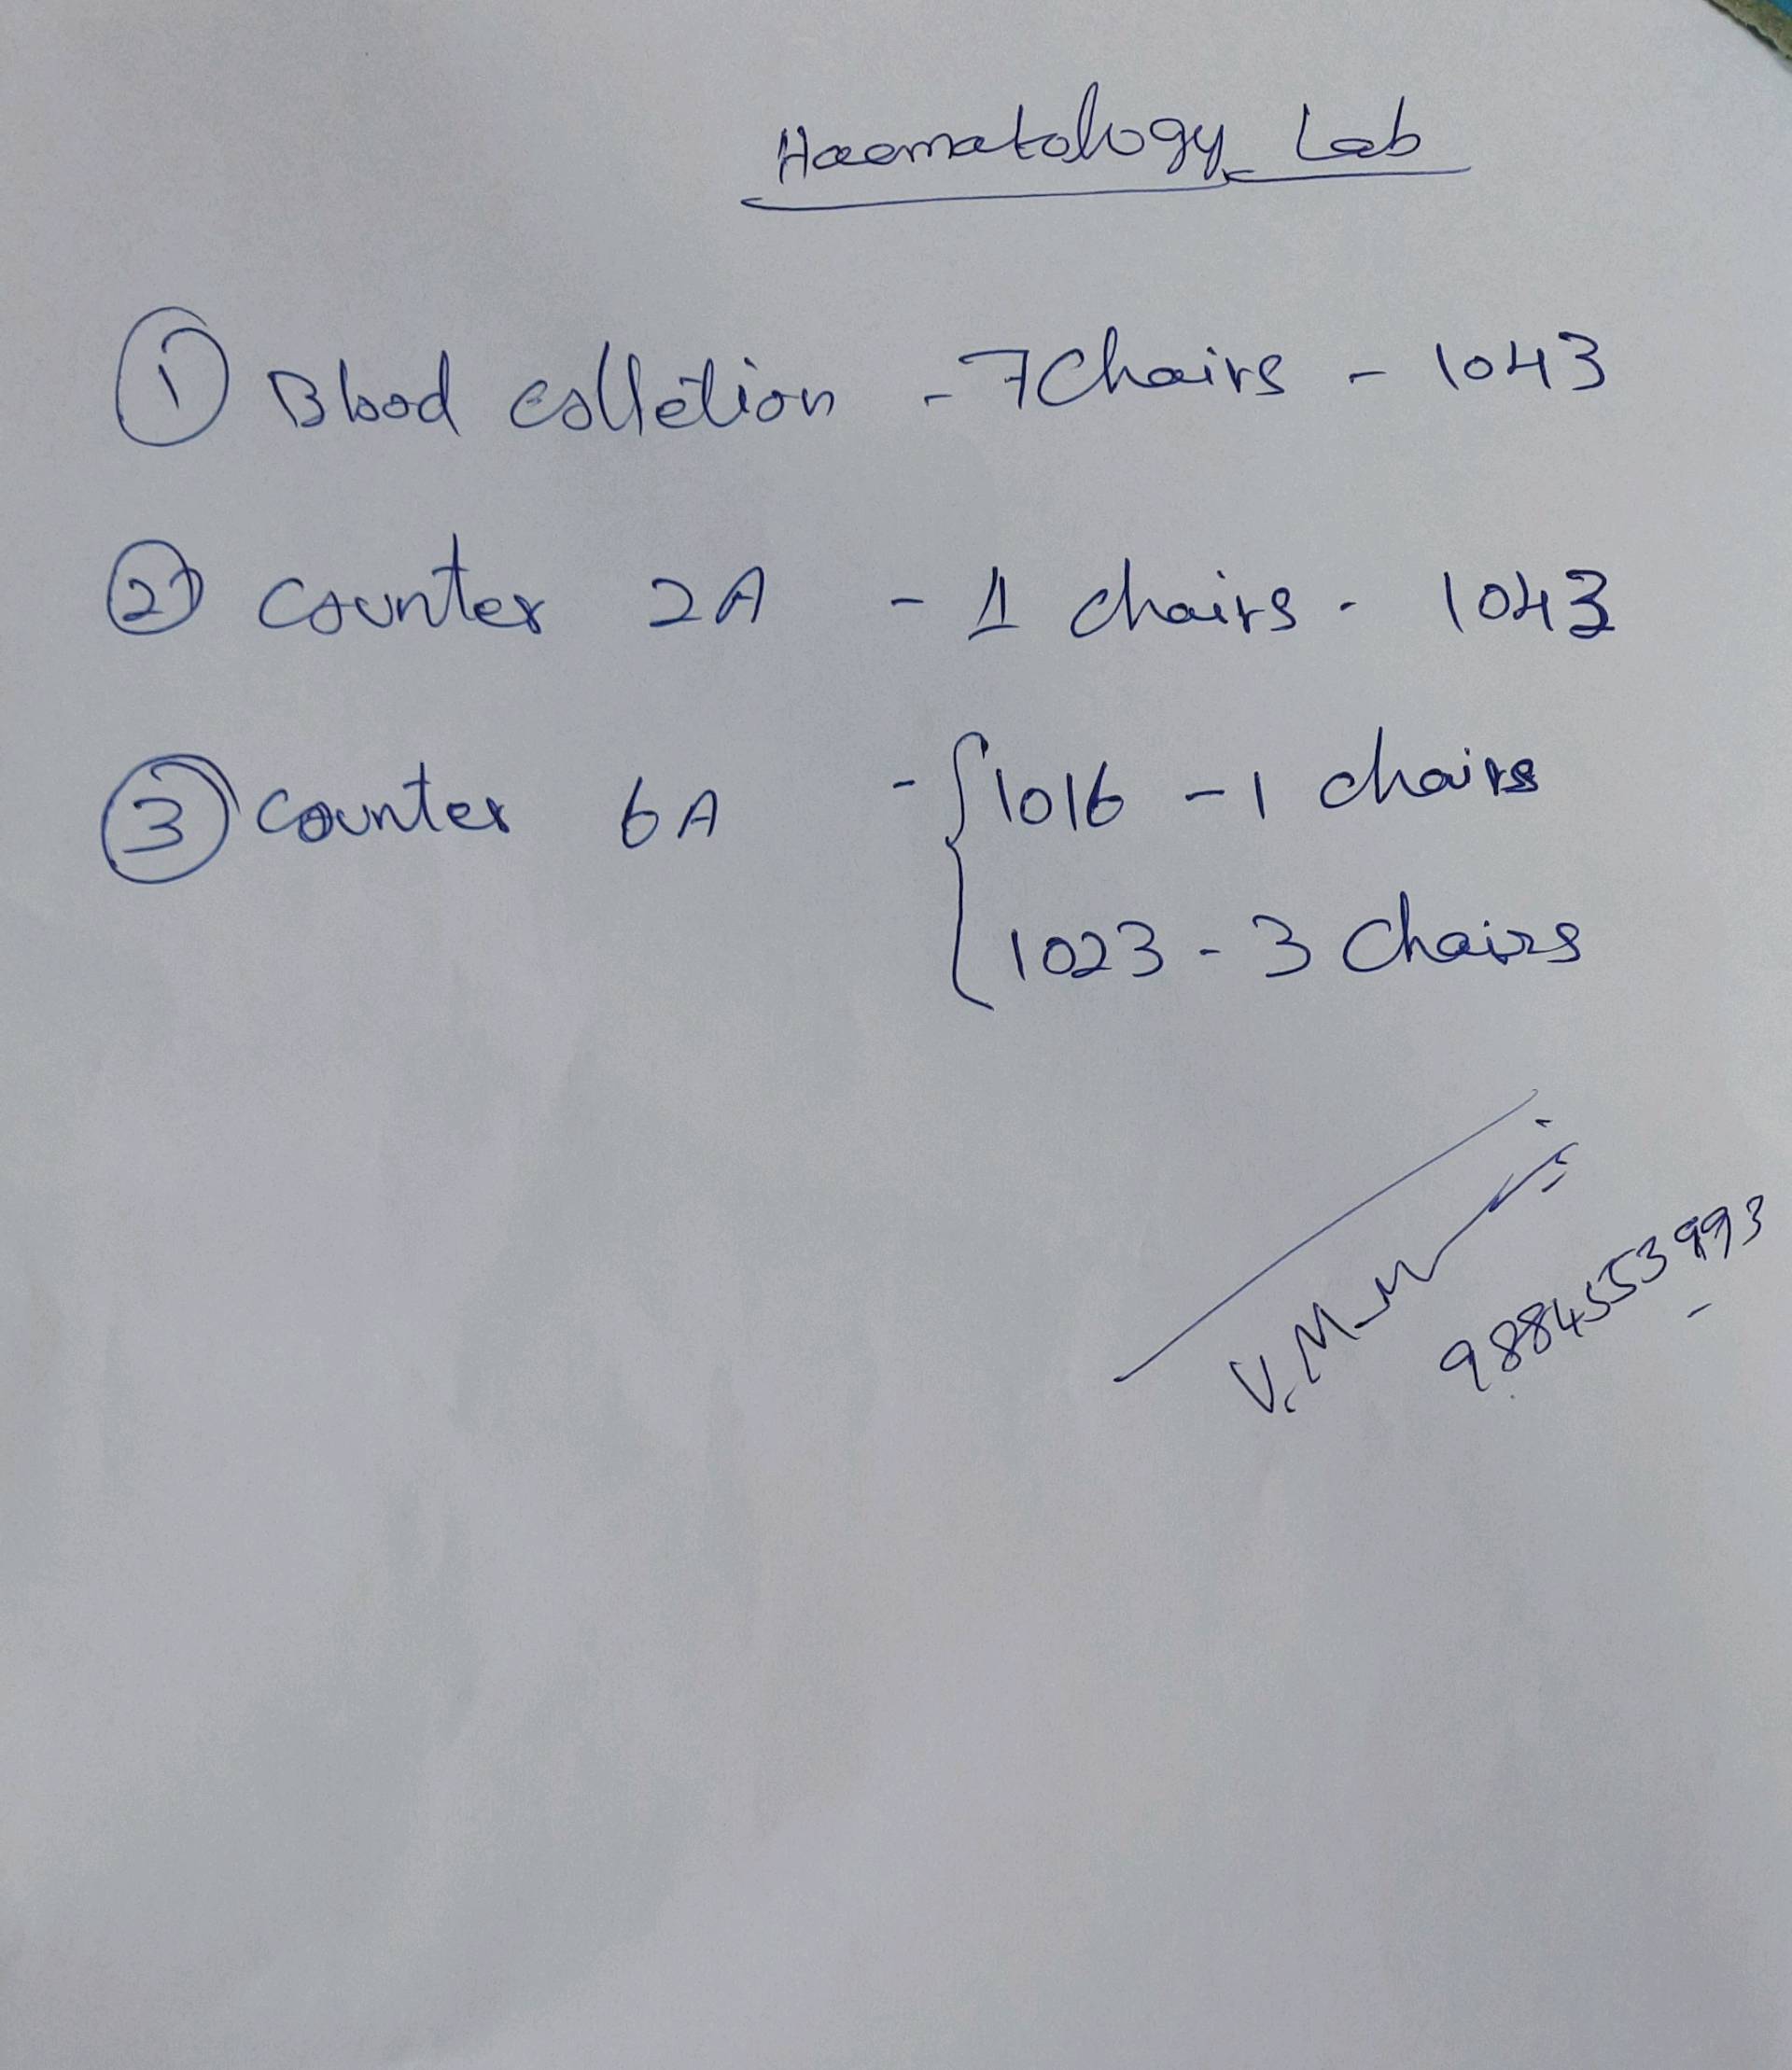 Haematology Lab
① Blood colletion - 7 Chairs - 1043
② Counter 2A - 1 chairs - 1043
③ Counter 6A - { 1016 - 1 chairs
1023 - 3 Chairs
V. M
9884553993